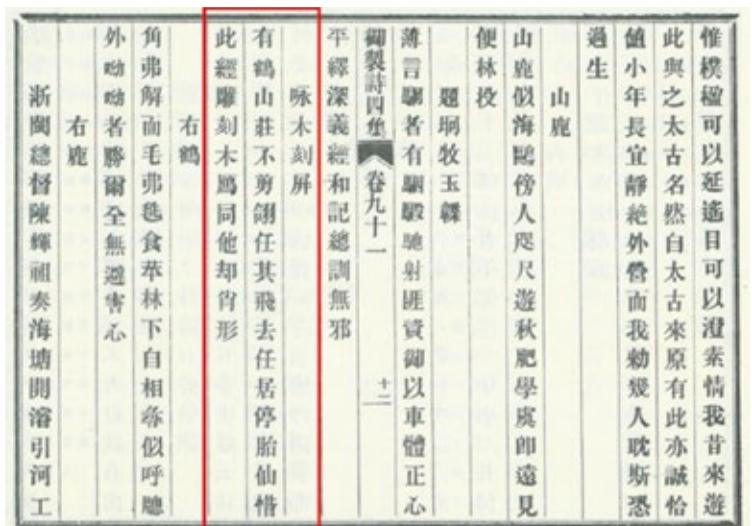 惟樸楹可以延遙目可以澄素情我昔來遊
此與之太古名然自太古來原有此亦誠恰
值小年長宜靜絶外營而我勅幾人耽斯恐
過生
山鹿
山鹿似海鷗傍人咫尺遊秋肥學虞卽遠見
便林投
題坰牧玉韘
薄言駉者有驈騢馳射匪資御以車體正心
御製詩四集 卷九十一 十二
平繹深義經和記總訓無邪
咏木刻屏
有鶴山莊不剪翎任其飛去任居停胎仙惜
此經雕刻木鳫同他却肖形
右鶴
角弗解而毛弗毨食苹林下自相尋似呼麀
外呦呦者勝爾全無避害心
右鹿
浙閩總督陳輝祖奏海塘開濬引河工